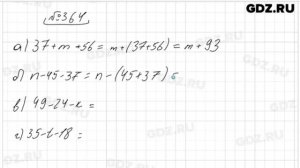 GDZ.RU
№364
а) 37 + m + 56 = m + (37 + 56) = m + 93
б) n - 45 - 37 = n - (45 + 37)
в) 49 - 24 - к =
г) 35 - t - 18 =
GDZ.RU